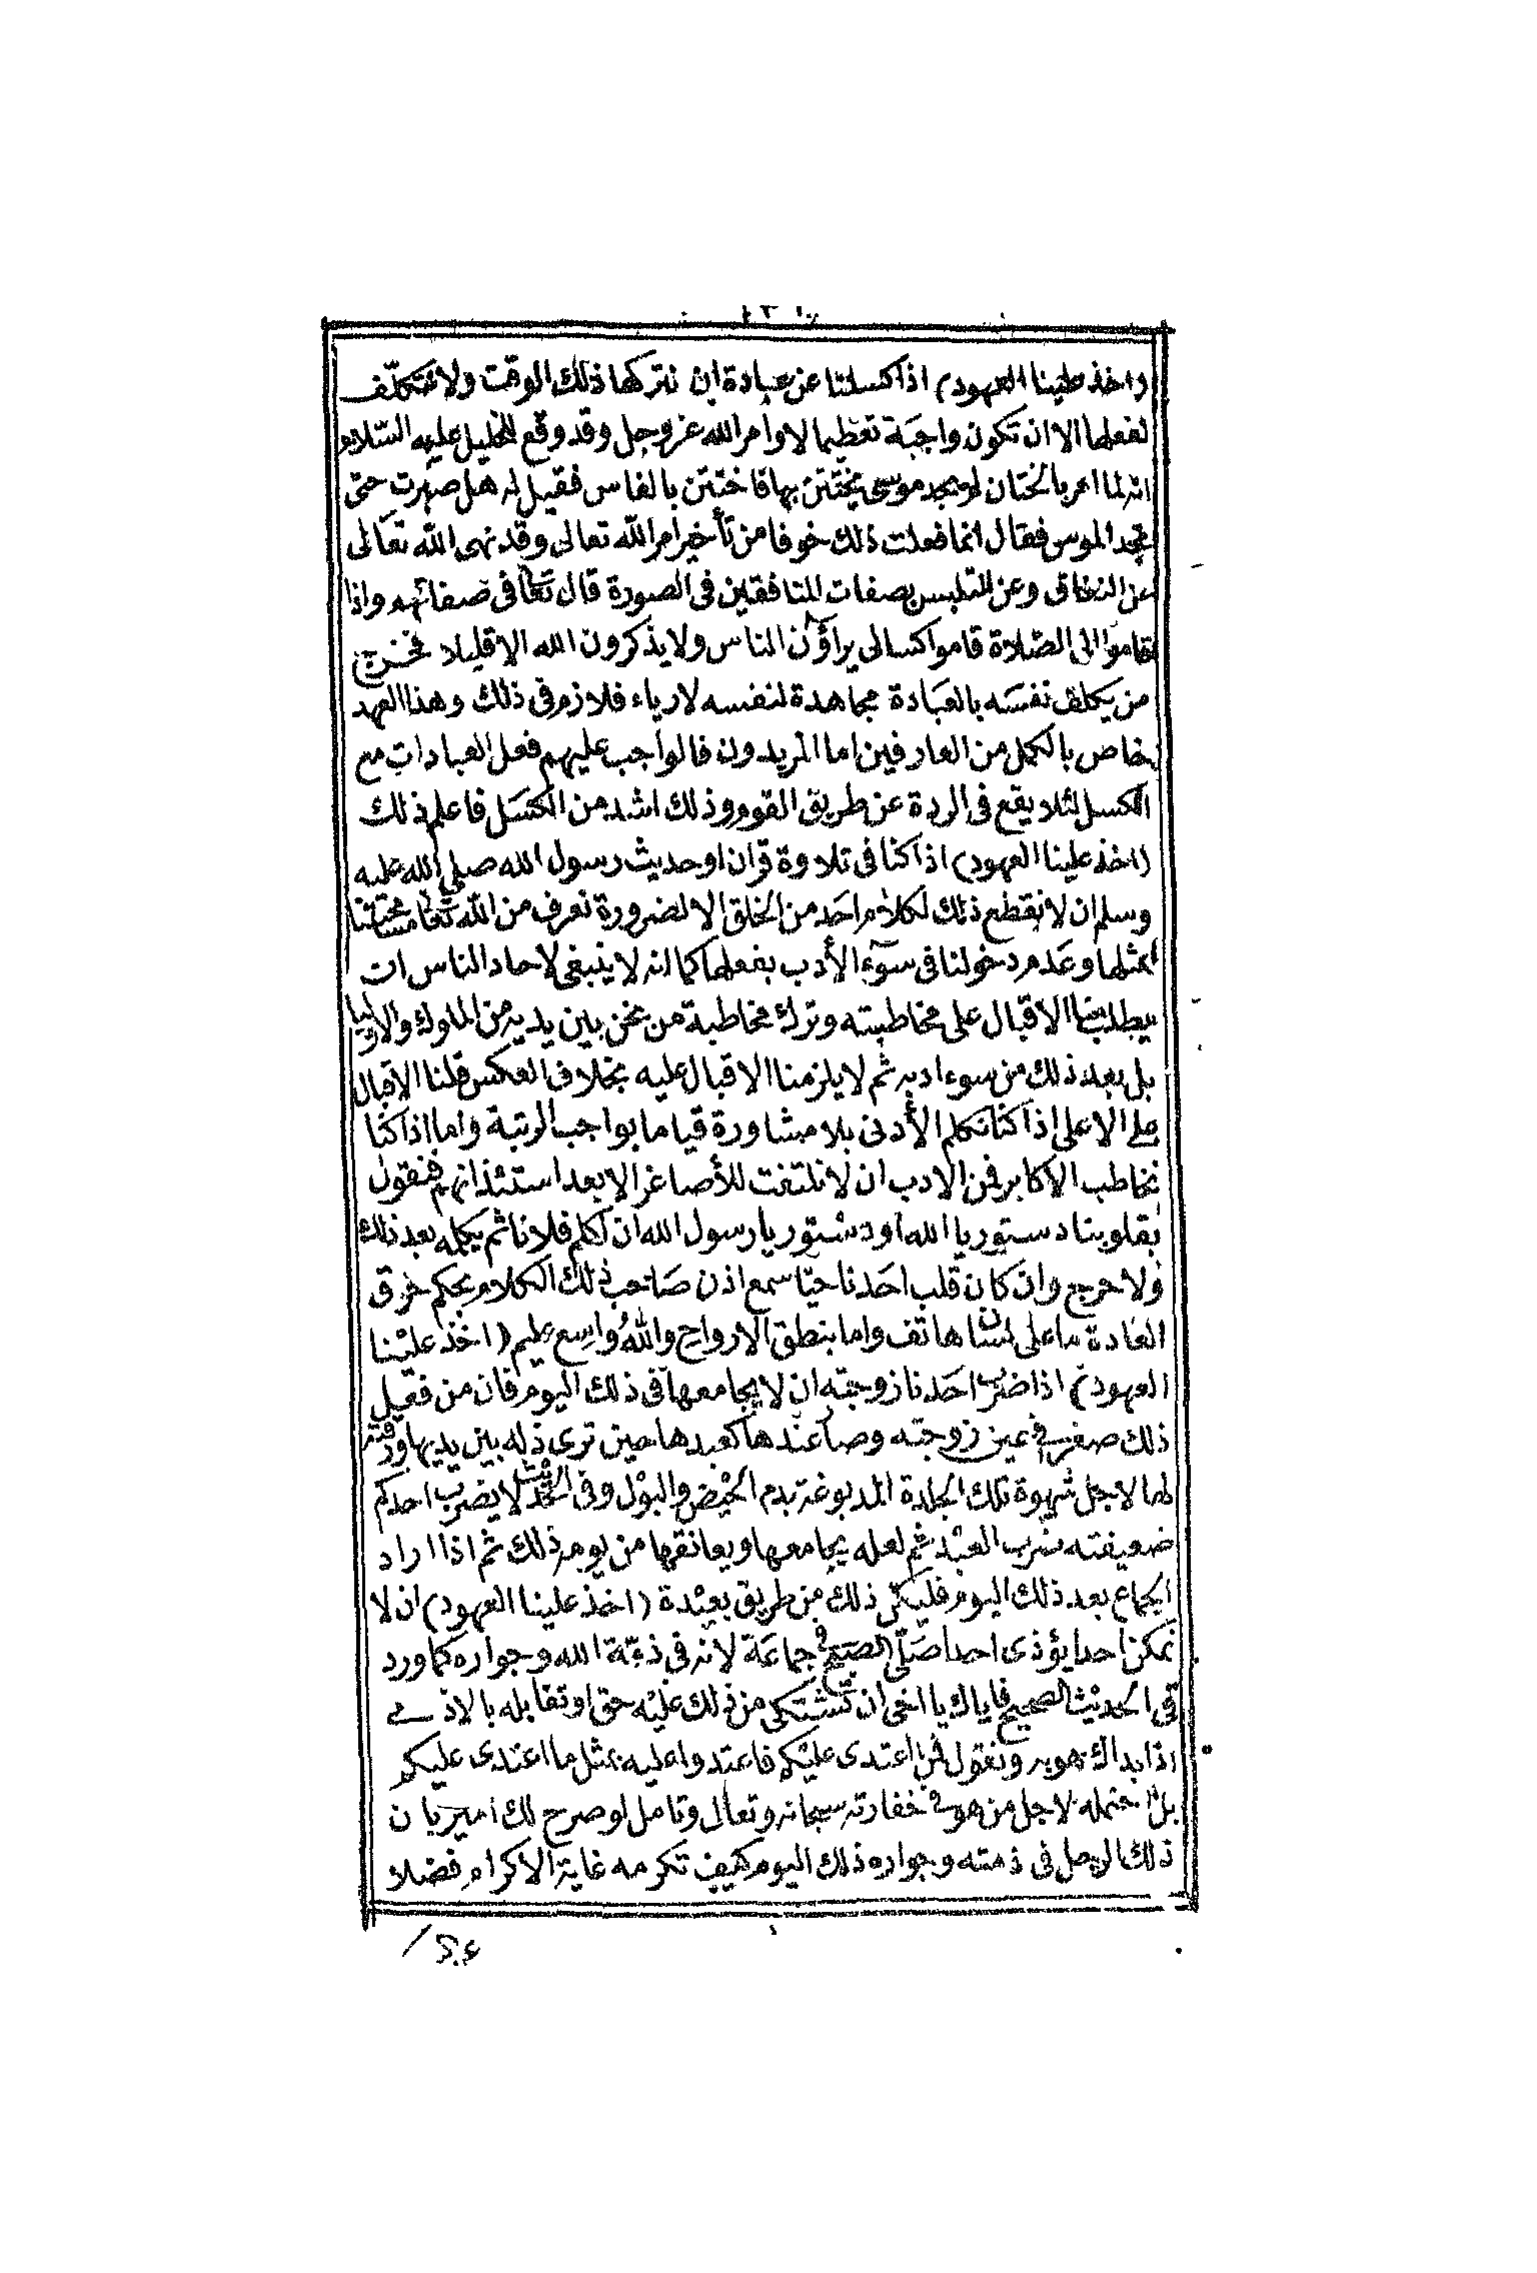 (اخذ علينا العهود) اذا كسلنا عن عبادة ان نتركها ذلك الوقت ولا نتكلف
لفعلها الا ان تكون واجبة تعظيما لاوامر الله عز وجل وقد وقع للخليل عليه السلام
انه لما امر بالختان لم يجد موسى يختتن بها فاختتن بالفاس فقيل له هل صبرت حتى
تجد الموسى فقال انما فعلت ذلك خوفا من تأخير امر الله تعالى وقد نهى الله تعالى
عن النفاق وعن التلبس بصفات المنافقين فى الصورة قال تعالى فى صفاتهم واذا
قاموا الى الصلاة قاموا كسالى يراؤن الناس ولا يذكرون الله الا قليلا فخرج
من يكلف نفسه بالعبادة مجاهدة لنفسه لا رياء فلا ذم فى ذلك وهذا العهد
خاص بالكمل من العارفين اما المريدون فالواجب عليهم فعل العبادات مع
الكسل لئلا يقع فى الردة عن طريق القوم وذلك اشد من الكسل فاعلم ذلك
(اخذ علينا العهود) اذا كنا فى تلاوة قران او حديث رسول الله صلى الله عليه
وسلم ان لا نقطع ذلك لكلام احد من الخلق الا لضرورة نعرف من الله تعالى مسامحتنا
بمثلها وعدم دخولنا فى سوء الأدب بفعلها كما انه لا ينبغى لاحاد الناس ان
يطلب منا الاقبال على مخاطبته وترك مخاطبة من نحن بين يديه من الملوك والاوليا
بل يعد ذلك من سوء ادبه ثم لا يلزمنا الاقبال عليه بخلاف العكس فلنا الاقبال
على الاعلى اذا كنا نكلم الأدنى بلا مشاورة قياما بواجب الرتبة واما اذا كنا
نخاطب الاكابر فمن الادب ان لا نلتفت للأصاغر الا بعد استئذانهم فنقول
بقلوبنا دستور يا الله او دستور يا رسول الله ان اكلم فلانا ثم يكلمه بعد ذلك
ولا حرج وان كان قلب احدنا حيا سمع اذن صاحب ذلك الكلام بحكم خرق
العادة اما على لسان هاتف واما بنطق الارواح والله واسع عليم (اخذ علينا
العهود) اذا ضرب احدنا زوجته ان لا يجامعها فى ذلك اليوم فان من فعل
ذلك صغر فى عين زوجته وصار عندها كعبدها حين ترى ذله بين يديها ورقته
لها لاجل شهوة تلك الجلدة المدبوغة بدم الحيض والبول وفى الحديث لا يضرب احدكم
ضعيفته ضرب العبد ثم لعله يجامعها ويعانقها من يومه ذلك ثم اذا اراد
الجماع بعد ذلك اليوم فليكن ذلك من طريق بعيدة (اخذ علينا العهود) ان لا
نمكن احدا يؤذى احدا صلى الصبح فى جماعة لانه فى ذمة الله وجواره كما ورد
فى الحديث الصحيح فاياك يا اخى ان تشتكى من ذلك عليه حق او تقابله بالاذى
اذا بداك هو به وتقول فمن اعتدى عليكم فاعتدوا عليه بمثل ما اعتدى عليكم
بل احتمله لاجل من هو فى خفارته سبحانه وتعالى وتامل لو صرح لك امير بان
ذلك الرجل فى ذمته وجواره ذلك اليوم كيف تكرمه غاية الاكرام فضلا